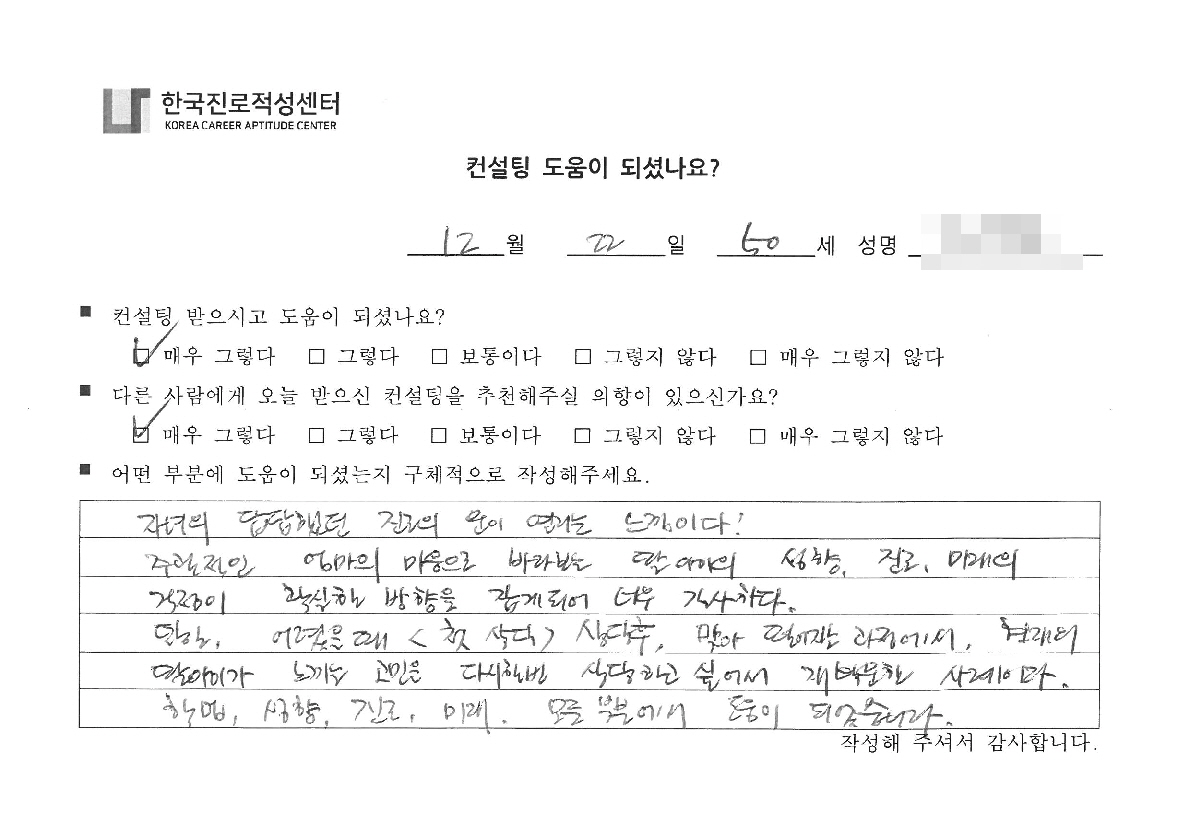 한국진로적성센터
KOREA CAREER APTITUDE CENTER
컨설팅 도움이 되셨나요?
12 월 22 일 50 세 성명
■ 컨설팅 받으시고 도움이 되셨나요?
☑ 매우 그렇다 □ 그렇다 □ 보통이다 □ 그렇지 않다 □ 매우 그렇지 않다
■ 다른 사람에게 오늘 받으신 컨설팅을 추천해주실 의향이 있으신가요?
☑ 매우 그렇다 □ 그렇다 □ 보통이다 □ 그렇지 않다 □ 매우 그렇지 않다
■ 어떤 부분에 도움이 되셨는지 구체적으로 작성해주세요.
자녀의 답답했던 진로의 문이 열리는 느낌이다!
주관적인 엄마의 마음으로 바라보는 딸 아이의 성향, 진로, 미래의
걱정이 확실한 방향을 잡게되어 너무 감사하다.
어렸을때 <첫 상담> 상담후, 맞아 떨어지는 과정에서, 현재의
딸아이가 느끼는 고민을 다시한번 상담하고 싶어서 재방문한 사례이다.
학업, 성향, 진로, 미래. 모든 부분에서 도움이 되었습니다.
작성해 주셔서 감사합니다.